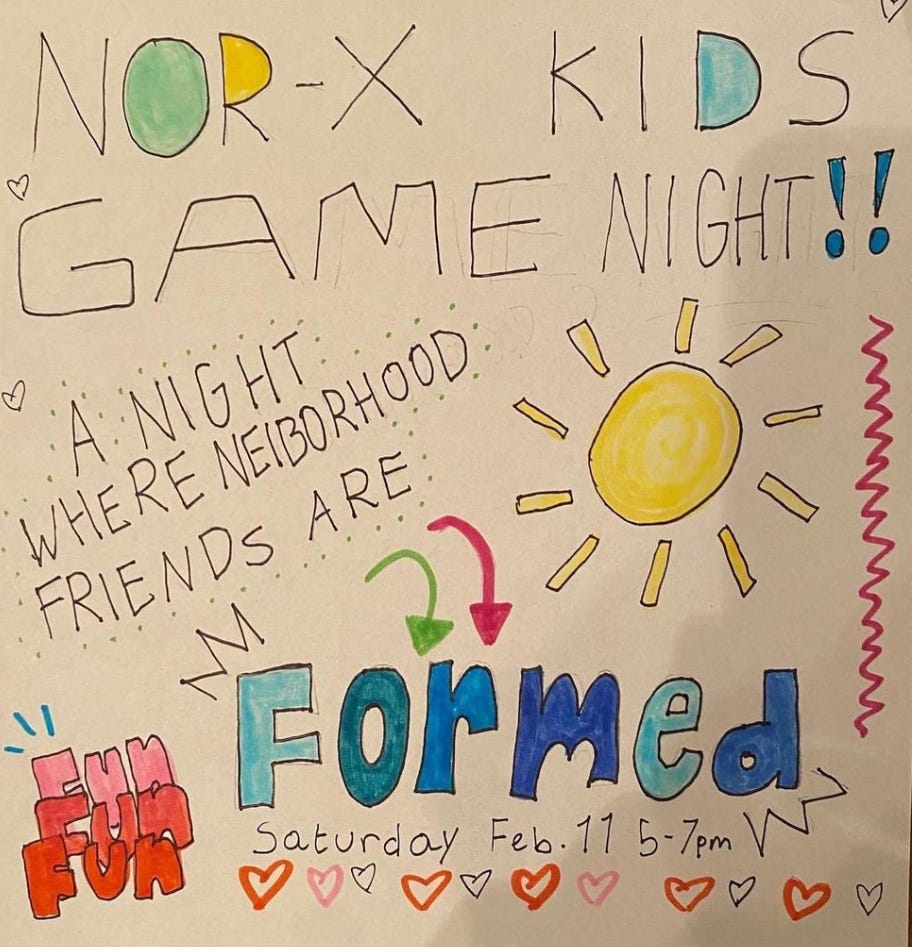 NOR-X KIDS
GAME NIGHT!!
A NIGHT
WHERE NEIBORHOOD
FRIENDS ARE
Formed
FUN
FUN
FUN
Saturday Feb. 11 5-7pm